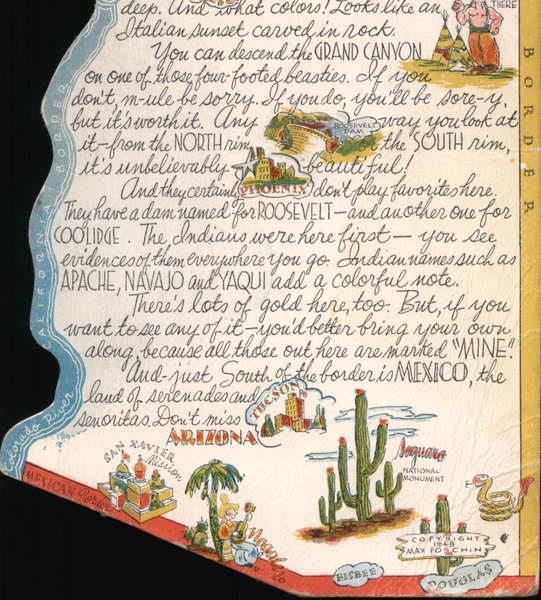 THERE
deep. And what colors! Looks like an
Italian sunset carved in rock.
You can descend the GRAND CANYON
on one of those four-footed beasties. If you
don't, m-ule be sorry. If you do, you'll be sore-y,
but it's worth it. Any ROOSEVELT DAM way you look at
it—from the NORTH rim, or the SOUTH rim,
it's unbelievably beautiful!
PHOENIX
And they certainly don't play favorites here.
They have a dam named for ROOSEVELT—and another one for
COOLIDGE. The Indians were here first—you see
evidences of them everywhere you go. Indian names such as
APACHE, NAVAJO and YAQUI add a colorful note.
There's lots of gold here, too. But, if you
want to see any of it—you'd better bring your own
along, because all those out here are marked "MINE".
And-just South of the border is MEXICO, the
land of serenades and
señoritas. Don't miss
TUCSON
ARIZONA
CALIFORNIA BORDER
Colorado River
BORDER
SAN XAVIER
Mission
MEXICAN Border
Saguaro
NATIONAL
MONUMENT
COPYRIGHT
1948
MAX POSCHIN
BISBEE
DOUGLAS